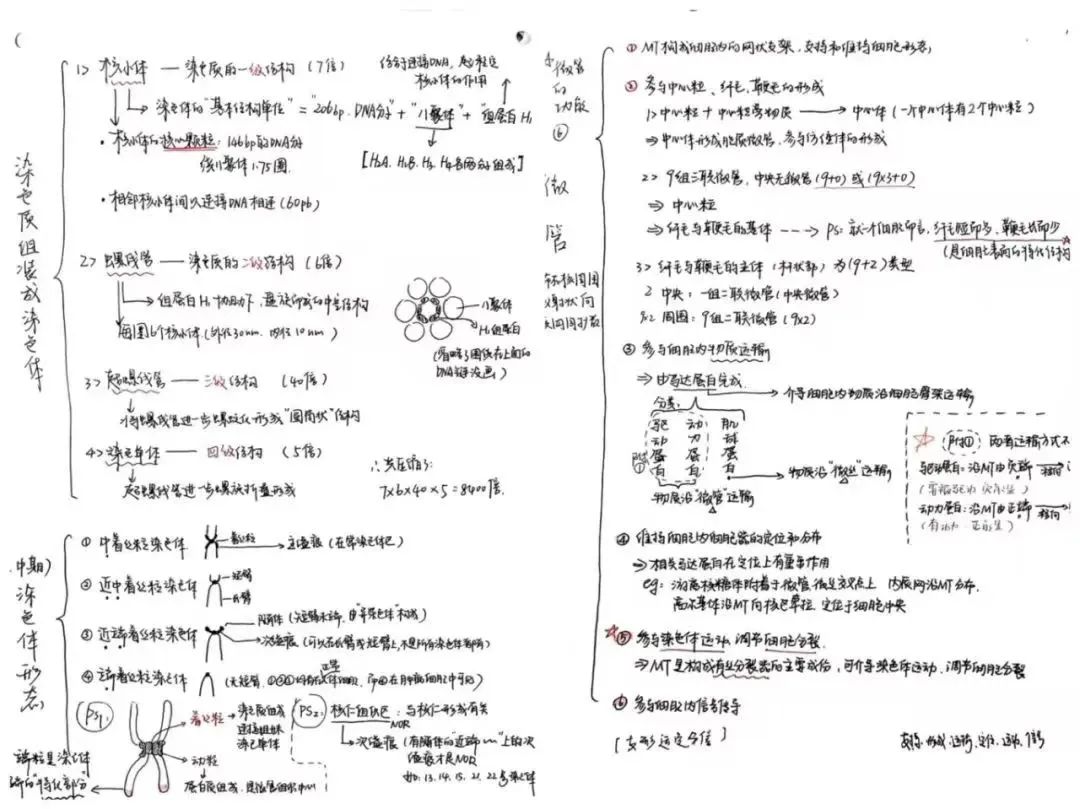 染色质组装成染色体
1> 核小体 —— 染色质的一级结构 (7倍)
位于连接DNA,起稳定核小体的作用
→ 染色体的"基本结构单位" = "200bp. DNA分子" + "八聚体" + "组蛋白H₁
• 核小体的核心颗粒: 146bp的DNA分子
绕八聚体1.75圈.
[H₂A. H₂B. H₃. H₄各两分子组成]
• 相邻核小体间以连接DNA相连 (60pb)
2> 螺线管 —— 染色质的二级结构 (6倍)
→ 组蛋白H₁协助下,螺旋形成的中空结构
每圈6个核小体 (外径30nm. 内径10nm)
八聚体
H₁组蛋白
(省略了围绕在上面的
DNA链没画)
3> 超螺线管 —— 三级结构 (40倍)
→ 将螺线管进一步螺旋化形成"圆筒状"结构
4> 染色单体 —— 四级结构 (5倍)
→ 超螺线管进一步螺旋折叠形成
∴ 共压缩了:
7×6×40×5=8400倍.
(中期)染色体形态
① 中着丝粒染色体
着丝粒
→ 主缢痕 (在常染色体区)
② 近中着丝粒染色体
短臂
长臂
③ 近端着丝粒染色体
随体 (短臂末端,由"异染色体"构成)
次缢痕 (可以在长臂或短臂上,不是所有染色体都有)
④ 端着丝粒染色体
PS₁:
着丝粒 → 染色质组成
连接姐妹
染色单体
动粒
蛋白质组成,
端粒是染色体
端的"特化部分"
PS₂: 核仁组织区: 与核仁形成有关
NOR
→ 次缢痕 (有随体的近端〃〃上的次
缢痕才是NOR
如. 13. 14. 15. 21. 22号染色体
☆微管的功能⑥
微管
① MT构成细胞内的网状支架,支持和维持细胞形态;
② 参与中心粒、纤毛、鞭毛的形成
1> 中心粒 + 中心粒旁物质 → 中心体 (一个中心体有2个中心粒)
⇒ 中心体形成胞质微管,参与纺锤体的形成
2> 9组三联微管,中央无微管 (9+0) 或 (9×3+0)
⇒ 中心粒
⇒ 纤毛与鞭毛的基体 ---> PS: 就一个细胞而言,纤毛短而多、鞭毛长而少
(是细胞表面的特化结构
3> 纤毛与鞭毛的主体 (杆状部) 为 (9+2) 类型
2 中央: 一组二联微管 (中央微管)
9×2 周围: 9组二联微管 (9×2)
③ 参与细胞内物质运输
⇒ 由马达蛋白完成. → 介导细胞内物质沿细胞骨架运输
分类:
驱动蛋白
动力蛋白
肌球蛋白
附①
→ 物质沿"微丝"运输
物质沿"微管"运输
☆ 附① 两者运输方式不
驱动蛋白: 沿MT由负端 移向
动力蛋白: 沿MT由正端 移向
④ 维持细胞内细胞器的定位和分布
⇒ 相关马达蛋白在定位上有重要作用
eg: 游离核糖体附着于微管、微丝交叉点上 内质网沿MT分布,
高尔基体沿MT向核区牵拉,定位于细胞中央
☆⑤ 参与染色体运动,调节细胞分裂
⇒ MT是构成有丝分裂器的主要成份,可介导染色体运动、调节细胞分裂
⑥ 参与细胞内信号传导
[支形运定分信]
支持、形成、运输、定位、运动、信号